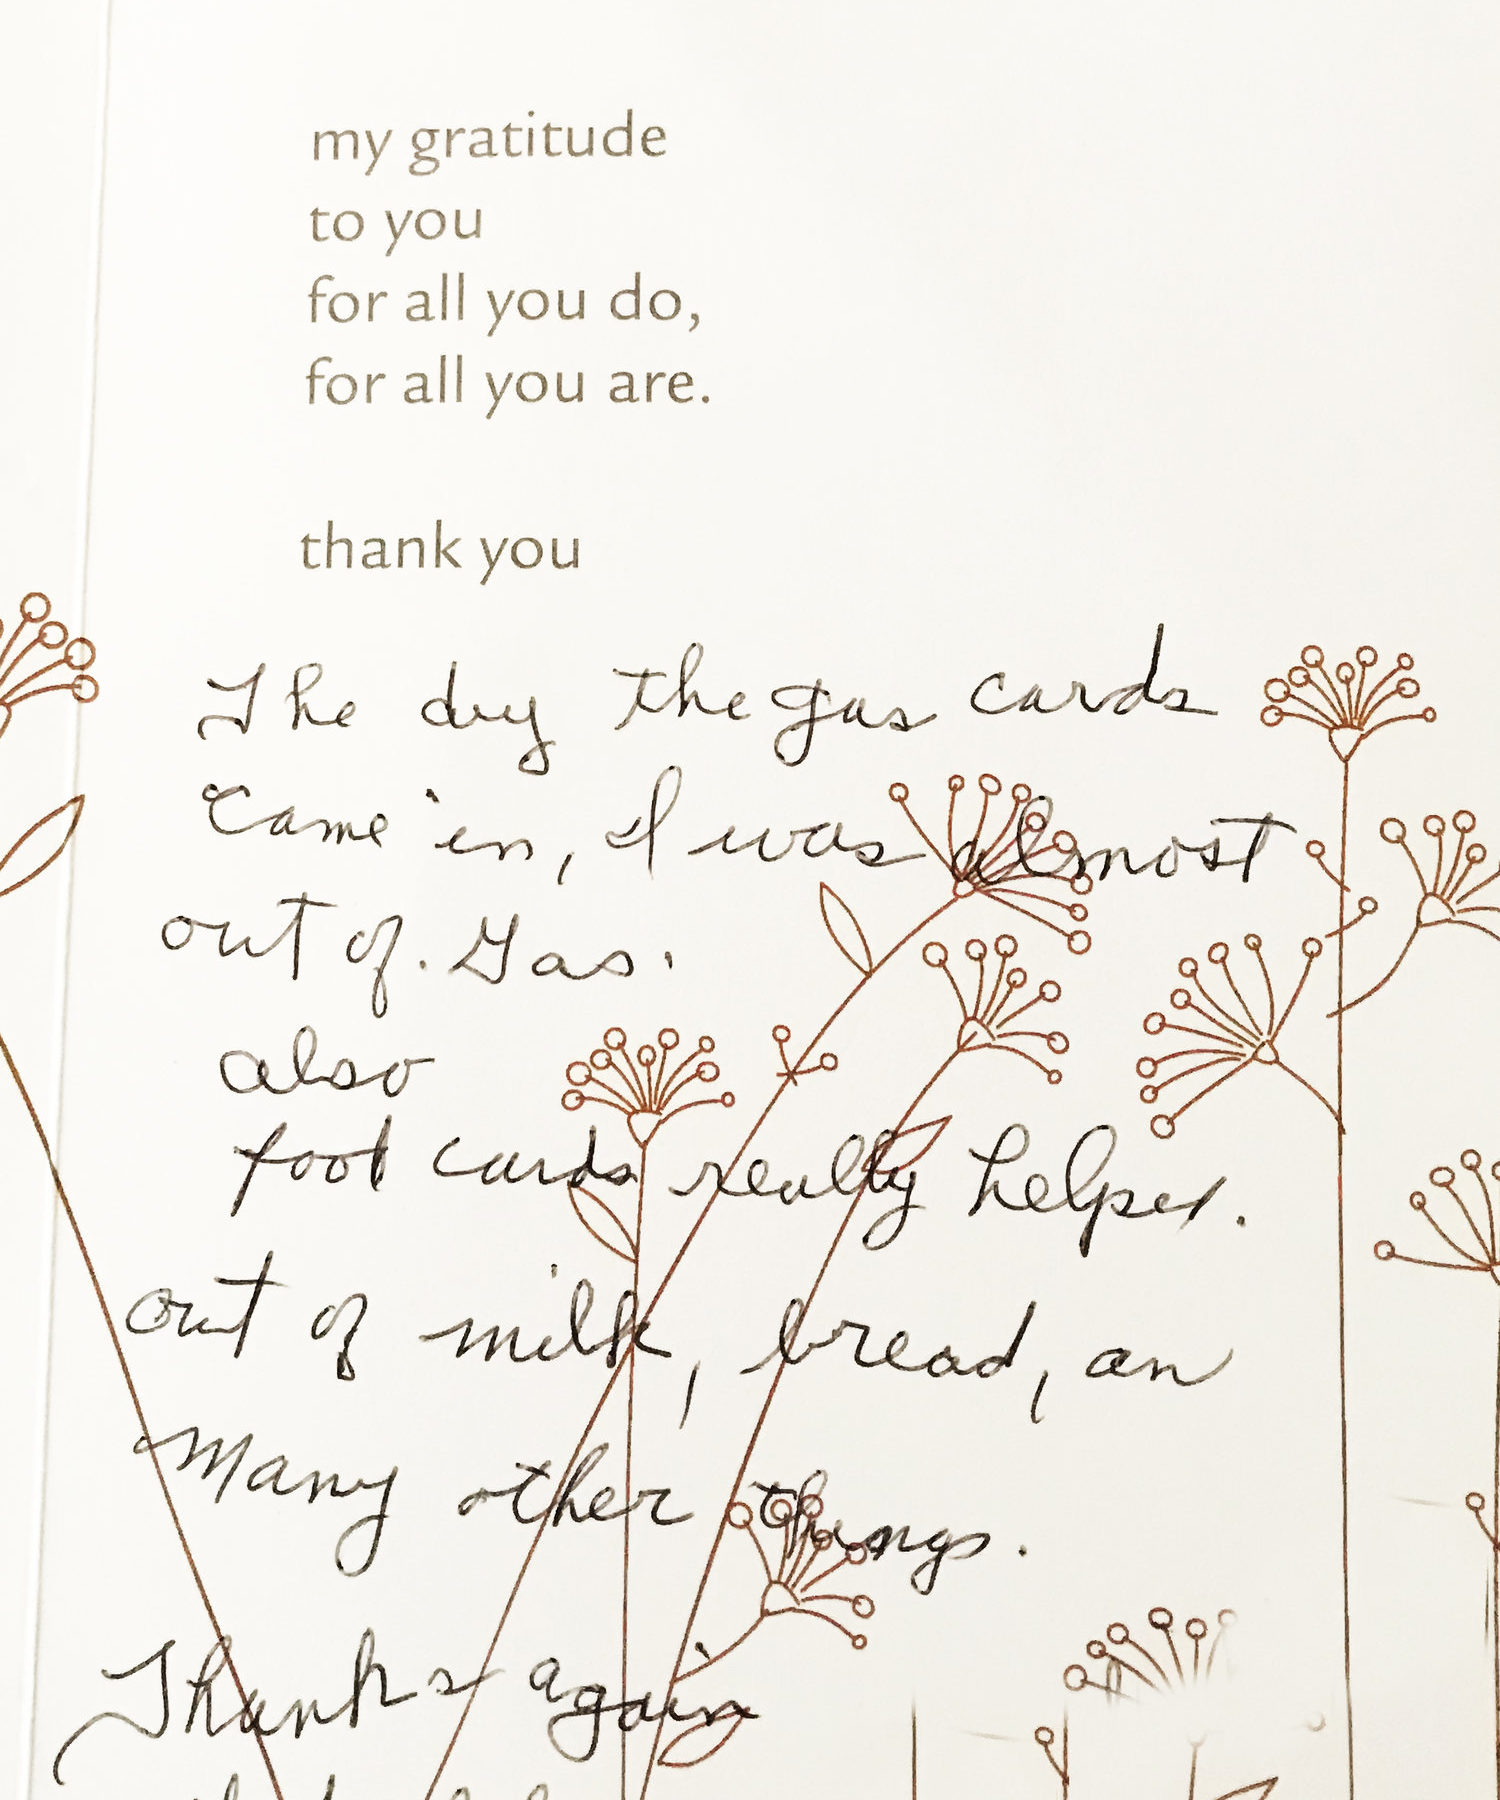 my gratitude
to you
for all you do,
for all you are.
thank you
The day the gas cards
came in, I was almost
out of. Gas.
also
food cards really helped.
out of milk, bread, an
many other things.
Thanks again